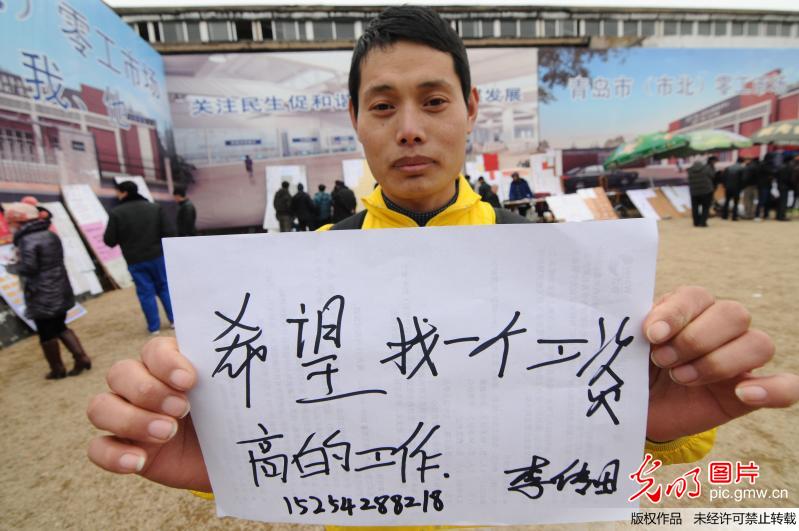 ）零工市场
我、他
关注民生促和谐
发展
青岛市（市北）零工市场
希望找一个工资
高的工作.
15254288218
李传田
光明图片
pic.gmw.cn
版权作品 未经许可禁止转载